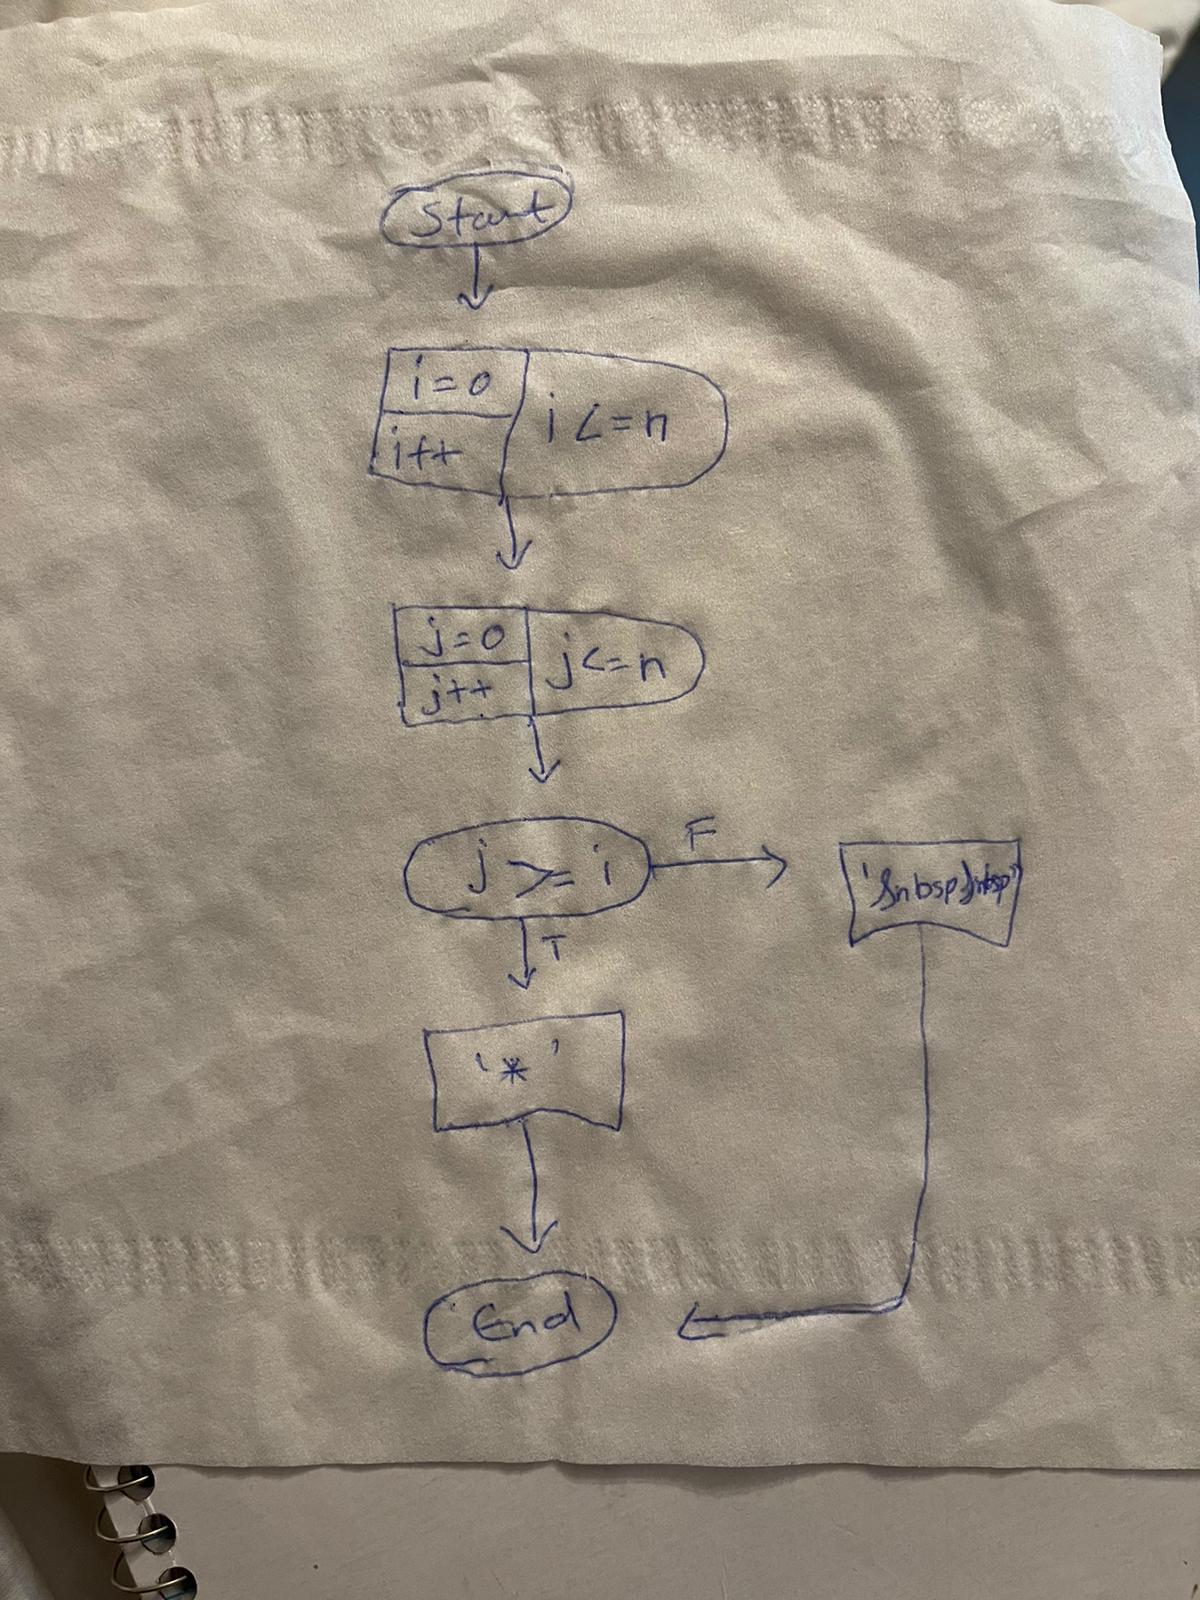 Start
i=0
i++
i<=n
j=0
j++
j<=n
j >= i
F
'&nbsp&nbsp'
T
'*'
End